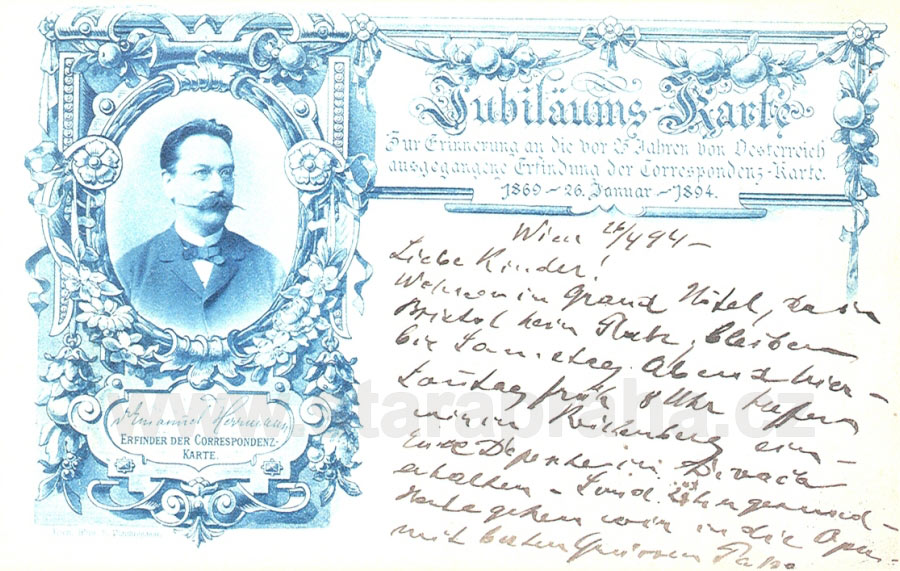 Jubiläums-Karte
Zur Erinnerung an die vor 25 Jahren von Oesterreich
ausgegangene Erfindung der Correspondenz-Karte.
1869 - 26. Januar - 1894.
Dr Emanuel Herrmann
ERFINDER DER CORRESPONDENZ-
KARTE.
Wien 94 -
Liebe Kinder!
Wohnen im Grand Hôtel, da im
Bristol kein Platz, bleiben
bis Samstag Abend hier -
Sontag früh 8 Uhr treffen
wir in ein -
Eure Depesche in
erhalten - Sind
Heute gehen wir in die Oper -
mit besten Grüssen Papa
www.starapraha.cz